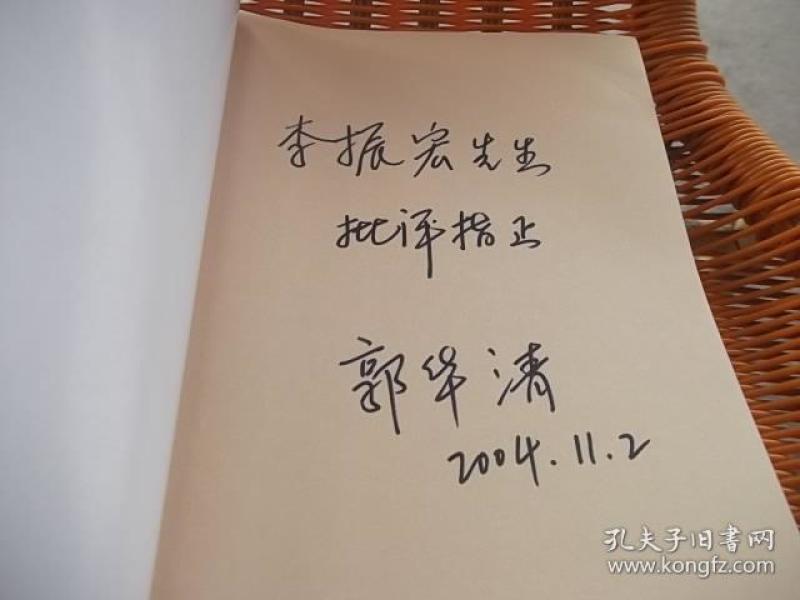 李振宏先生
批评指正
郭华清
2004.11.2
孔夫子旧書网
www.kongfz.com